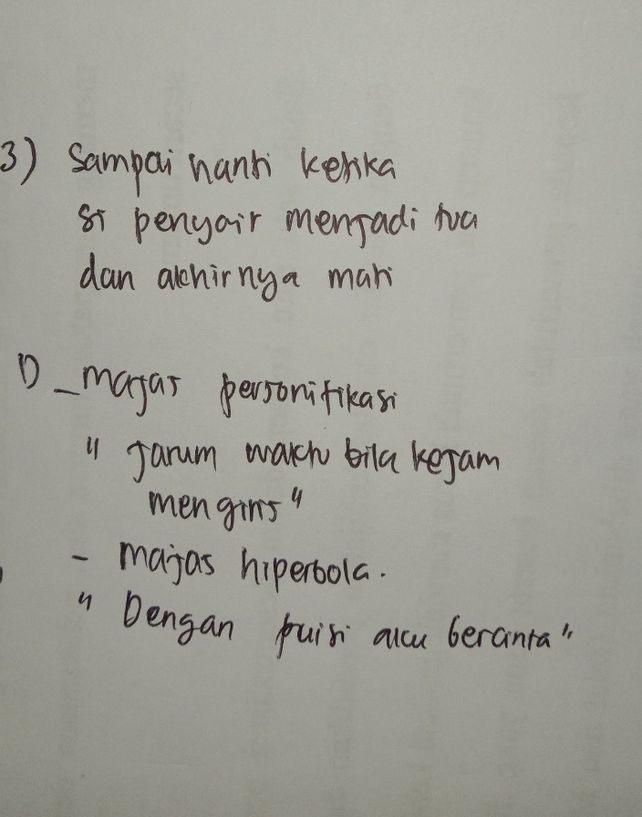 3) Sampai nanti ketika
si penyair menjadi tua
dan akhirnya mati
D - majas personifikasi
" jarum waktu bila kejam
mengiris "
- majas hiperbola.
" Dengan puisi aku bercinta "